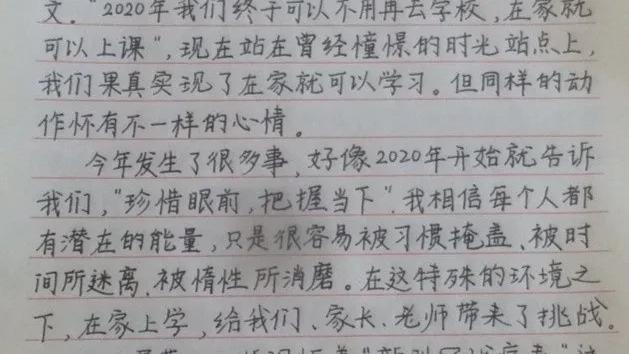 文."2020年我们终于可以不用再去学校,在家就
可以上课",现在站在曾经憧憬的时光站点上,
我们果真实现了在家就可以学习。但同样的动
作怀有不一样的心情。
今年发生了很多事,好像2020年开始就告诉
我们,"珍惜眼前,把握当下".我相信每个人都
有潜在的能量,只是很容易被习惯掩盖、被时
间所迷离、被惰性所消磨。在这特殊的环境之
下,在家上学,给我们、家长、老师带来了挑战。